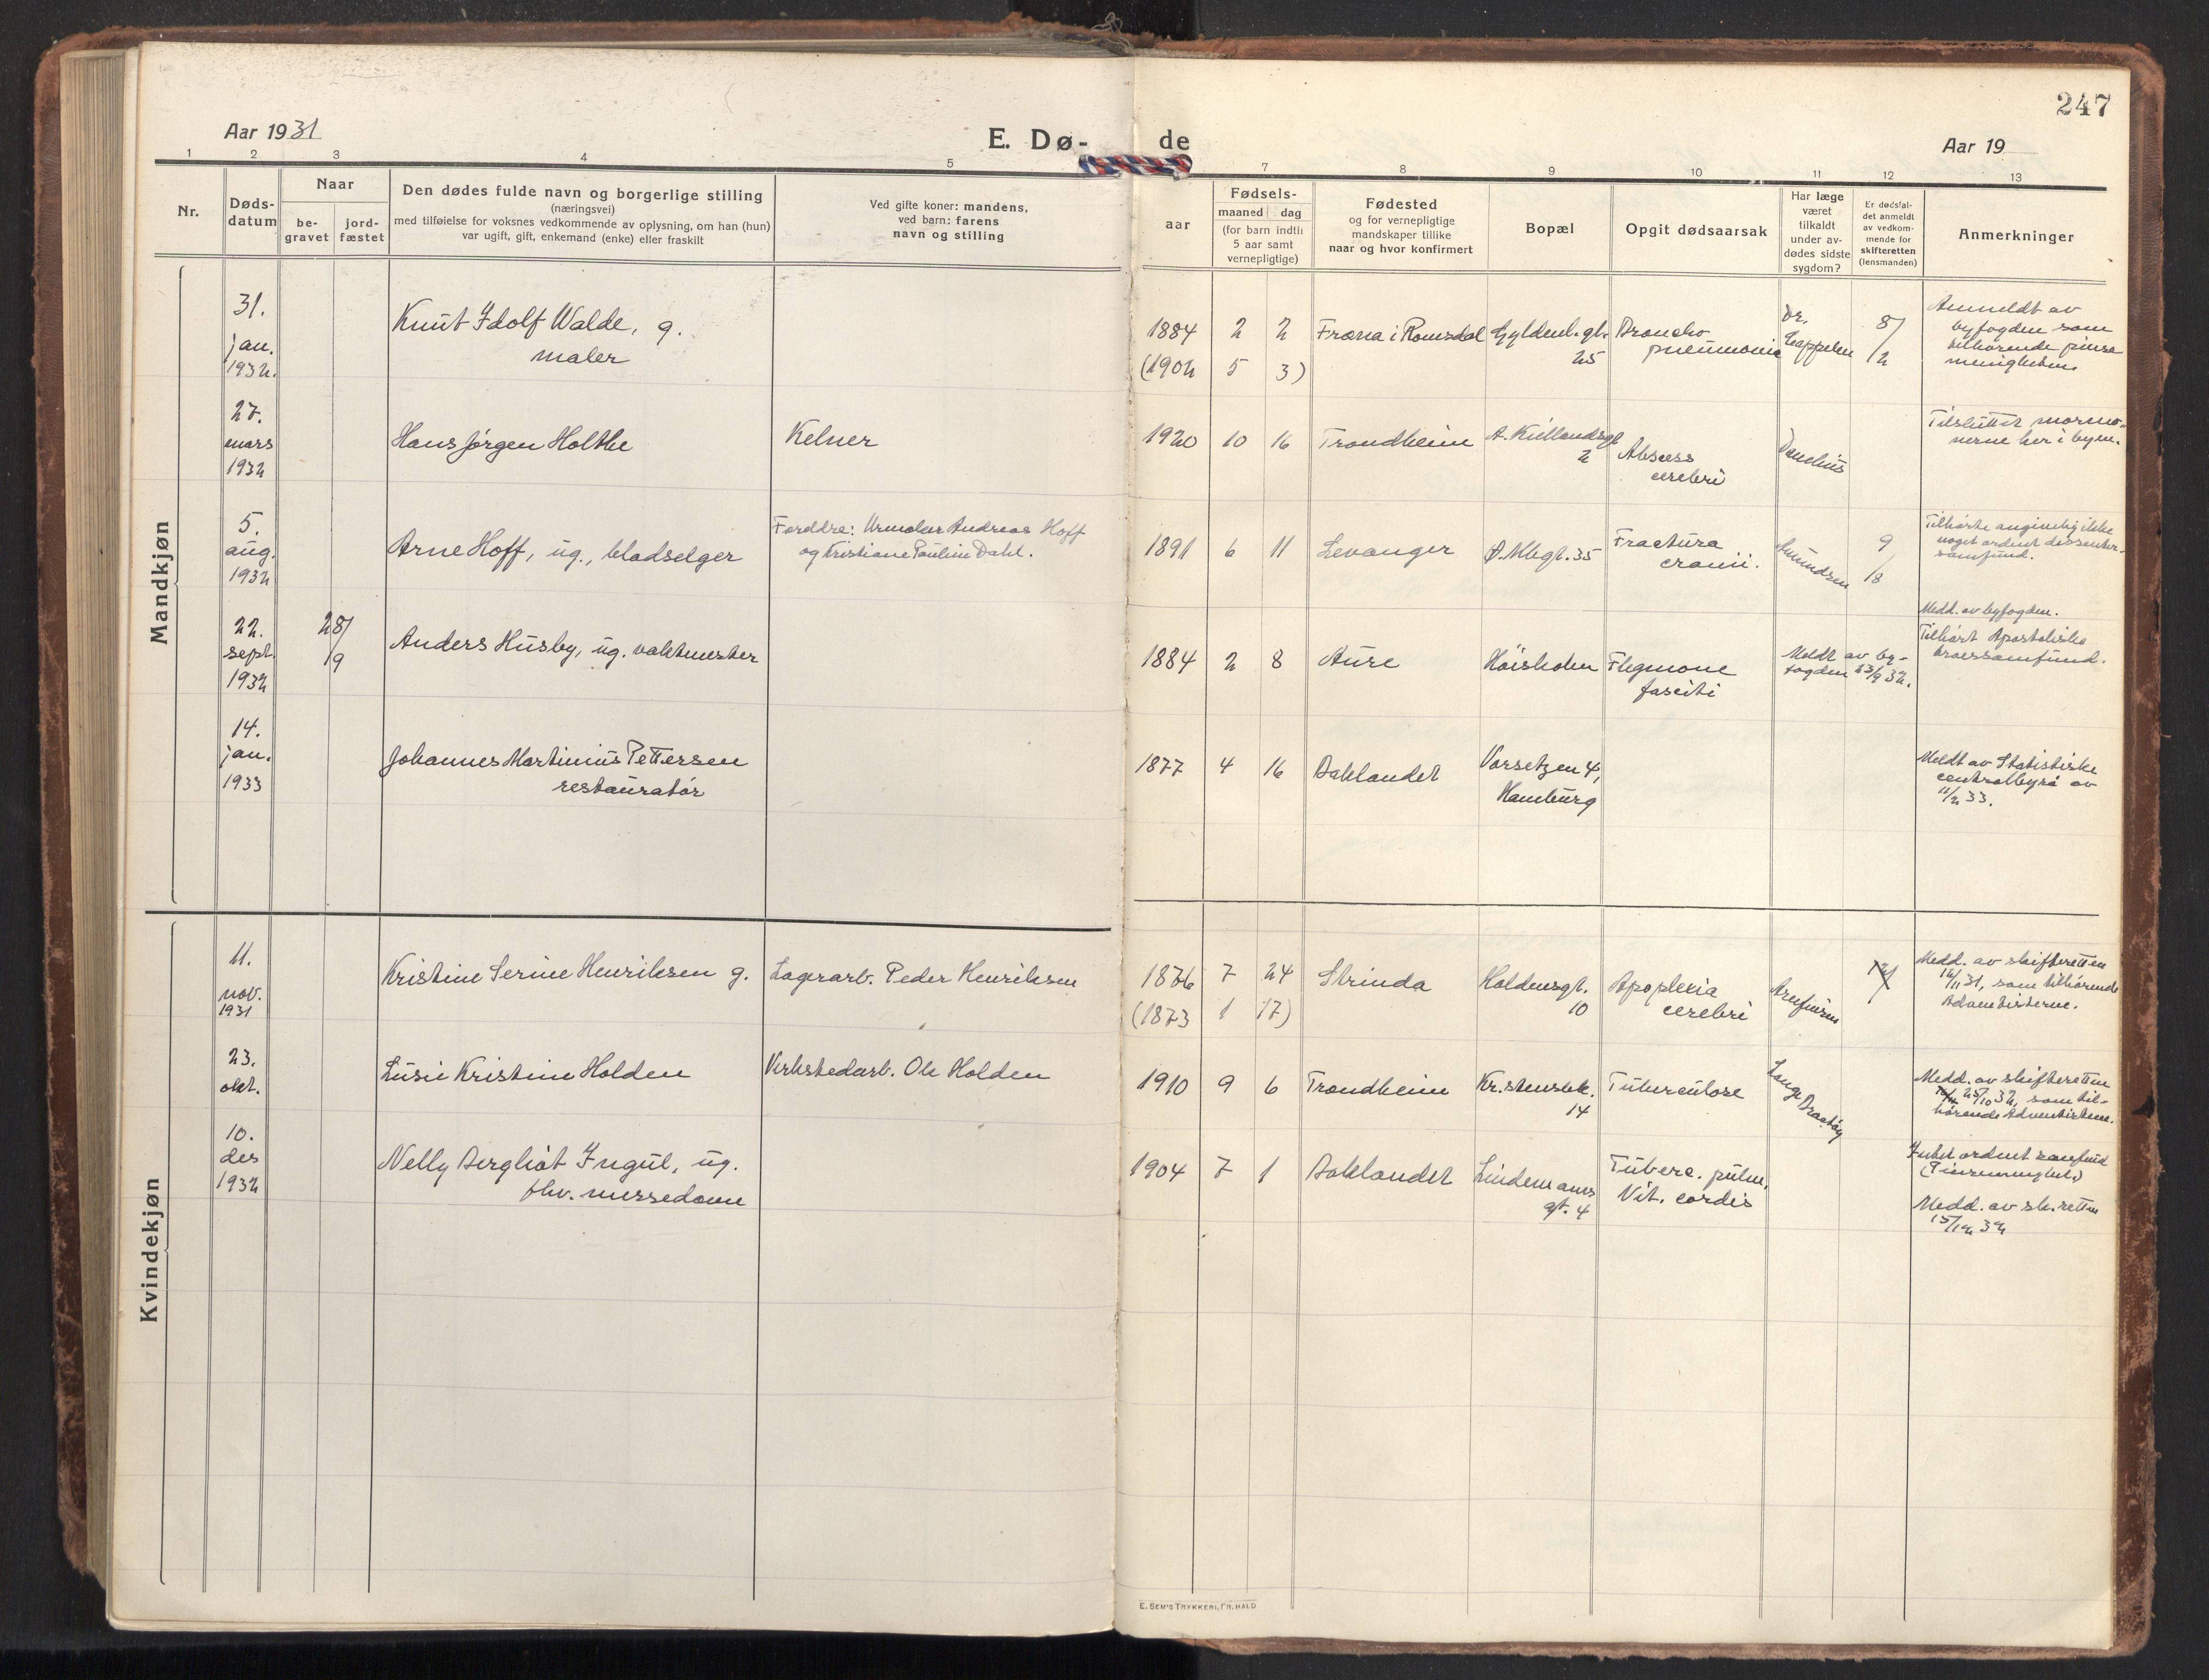 247
Aar 1931
E. Dø- de
Aar 19
1 2 3 4 5 7 8 9 10 11 12 13
Nr.
Døds-
datum
Naar
be-
gravet
jord-
fæstet
Den dødes fulde navn og borgerlige stilling
(næringsvei)
med tilføielse for voksnes vedkommende av oplysning, om han (hun)
var ugift, gift, enkemand (enke) eller fraskilt
Ved gifte koner: mandens,
ved barn: farens
navn og stilling
aar
Fødsels-
maaned dag
(for barn indtil
5 aar samt
vernepligtige)
Fødested
og for vernepligtige
mandskaper tillike
naar og hvor konfirmert
Bopæl
Opgit dødsaarsak
Har læge
været
tilkaldt
under av-
dødes sidste
sygdom?
Er dødsfal-
det anmeldt
av vedkom-
mende for
skifteretten
(lensmanden)
Anmerkninger
Mandkjøn
31.
jan.
1932.
Knut Idolf Walde, g.
maler
1884 2 2
(1902 5 3)
Fræna i Romsdal
Gyldenl. gt.
25
Broncho
pneumonie
Dr.
Cappelen
8/2
Anmeldt av
byfogden som
tilhørende pinse
menigheten.
27.
mars
1932
Hans Jørgen Holthe
Kelner
1920 10 16
Trondheim
A. Kiellandsgt
2
Abscess
cerebri
Tilsluttet mormo-
nerne her i byen.
5.
aug.
1932
Arne Hoff, ug., bladselger
Forældre: Urmaker Andreas Hoff
og Kristiane Pauline Dahl.
1891 6 11
Levanger
Ø. Kbgt. 35
Fractura
cranii.
Amundsen
9/8
Tilhørte angivelig ikke
noget ordnet dissenter-
samfund.
22.
sept.
1932
28/9
Anders Husby, ug. vaktmester
1884 2 8
Aure
Høiskolen
Flegmone
fasciti
Meldt av by-
fogden 23/9 32.
Medd. av byfogden.
Tilhørt Apostoliske
trossamfund.
14.
jan.
1933
Johannes Martinius Pettersen
restauratør
1877 4 16
Baklandet
Vorsetzen 4,
Hamburg
Meldt av Statistiske
centralbyrå av
11/2 33.
Kvindekjøn
11.
nov.
1931
Kristine Serine Henriksen g.
Lagerarb. Peder Henriksen
1876 7 24
(1873 1 17)
Strinda
Holdensgt.
10
Apoplexia
cerebri
Medd. av skifteretten
12/11 31, som tilhørende
Adventisterne.
23.
okt.
Lusie Kristine Holden
Verkstedarb. Ole Holden
1910 9 6
Trondheim
Kr.stensbk.
14
Tuberculose
Lange
Medd. av skifteretten
25/10 32, som til-
hørende Adventistene.
10.
des
1932
Nelly Bergliot Ingul, ug.
fhv. messedame
1904 7 1
Baklandet
Lindemanns
gt. 4
Tuberc. pulm.
Vit. cordis
Intet ordnet samfund
Medd. av sk.retten
15/12 32
E. SEM'S TRYKKERI, FR.HALD